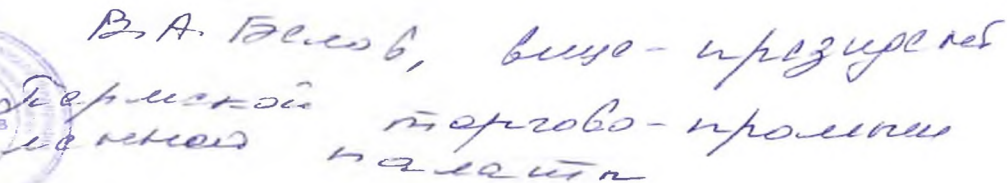 В.А. Белов, вице-президент
Пермской торгово-промыш
ленной палаты